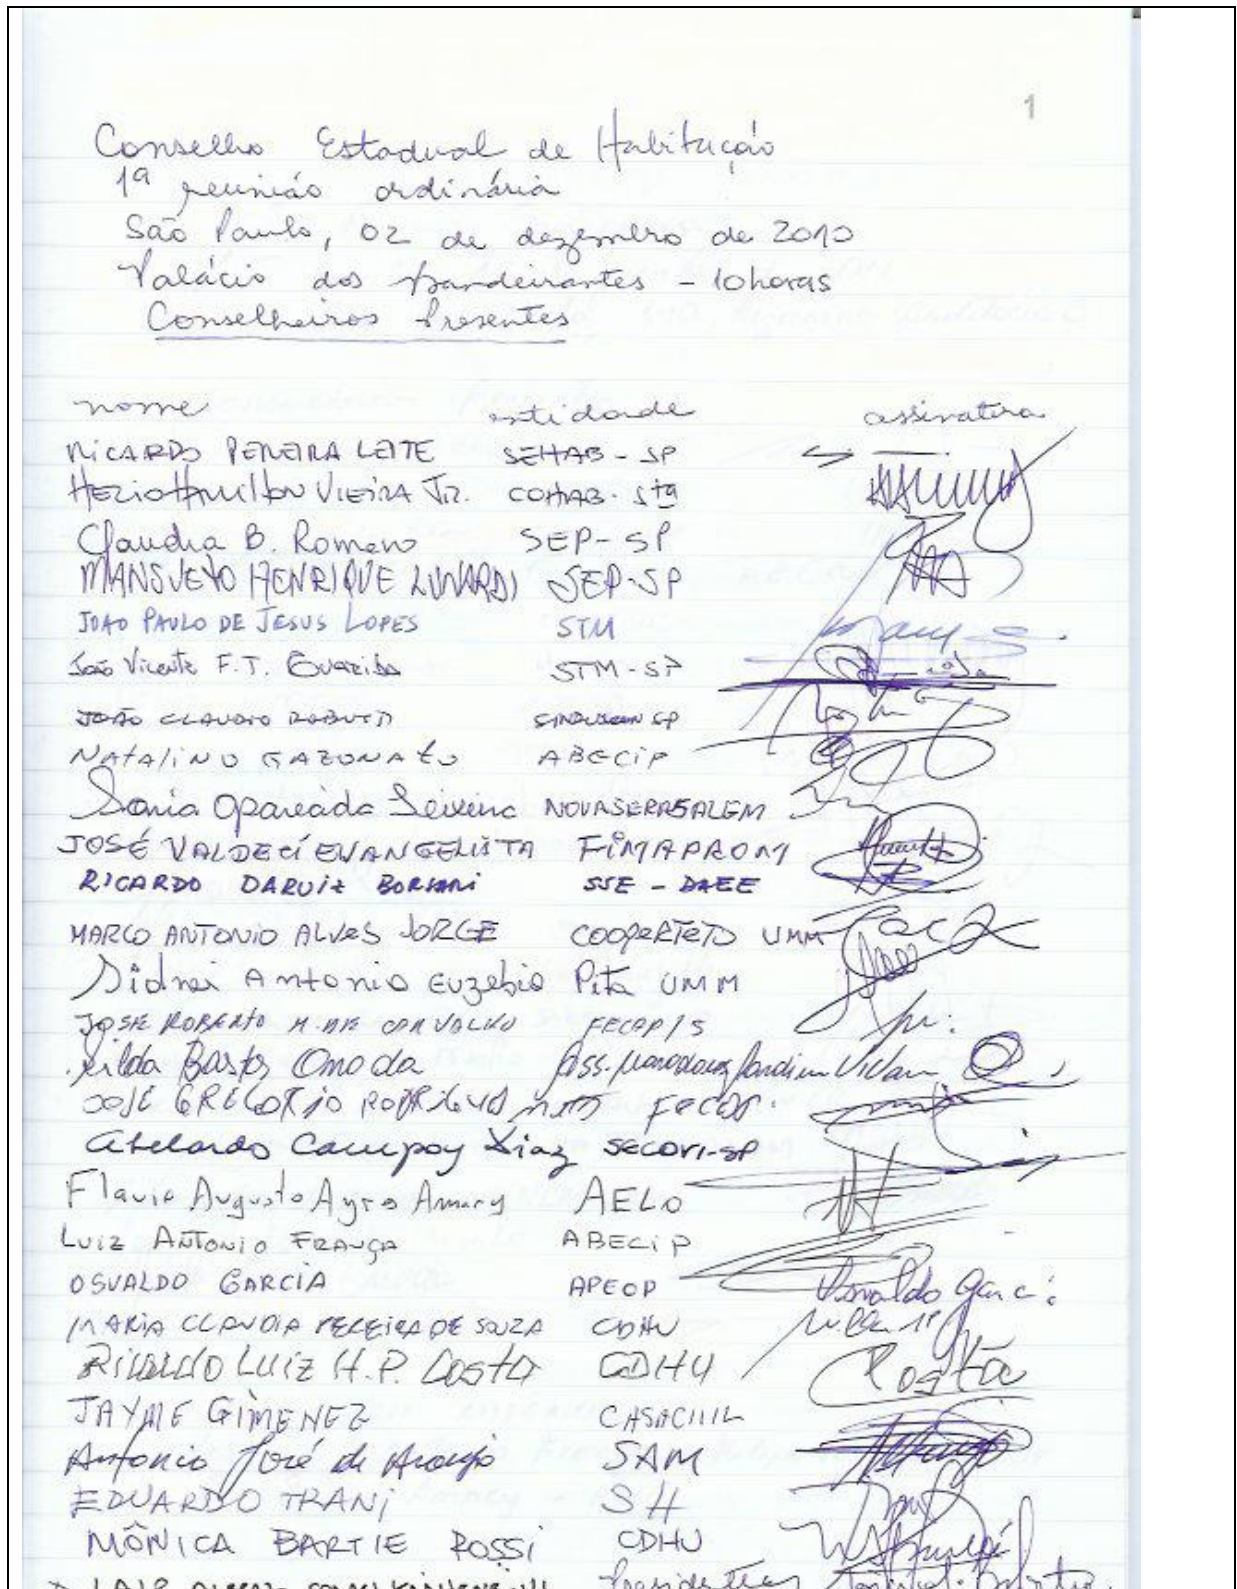 1
Conselho Estadual de Habitação
1ª reunião ordinária
São Paulo, 02 de dezembro de 2010
Palácio dos Bandeirantes - 10 horas
Conselheiros Presentes
nome entidade assinatura
RICARDO PEREIRA LEITE SEHAB - SP
Helio Hamilton Vieira Jr. COHAB - Sta
Claudia B. Romero SEP - SP
MANSUETO HENRIQUE LUNARDI SEP-SP
JOÃO PAULO DE JESUS LOPES STM
João Vicente F.T. Guariba STM-SP
JOÃO CLAUDIO ROBUSTI SINDUSCON SP
Natalino GAZONATO ABECIP
Sonia Aparecida NOVASERRASALEM
JOSÉ VALDECÍ EVANGELISTA FIMAPROM
RICARDO DARUIZ BORSARI SSE - DAEE
MARCO ANTONIO ALVES JORGE COOPERTETO UMM
Sidnei Antonio Euzebio Pita UMM
JOSE ROBERTO M. DE CARVALHO
Bastos Onoda Ass. Moradores Jardim
JOSE GREGORIO
Abelardo Campoy Diaz SECOVI-SP
Flavio Augusto Ayres Amary AELO
LUIZ ANTONIO FRANÇA ABECIP
OSVALDO GARCIA APEOP Osvaldo Garcia
MARIA CLAUDIA PEREIRA DE SOUZA CDHU
Ricardo Luiz H.P. Costa CDHU Costa
JAYME GIMENEZ
Antonio José de Araujo SAM
EDUARDO TRANI SH
MÔNICA BARTIÉ ROSSI CDHU